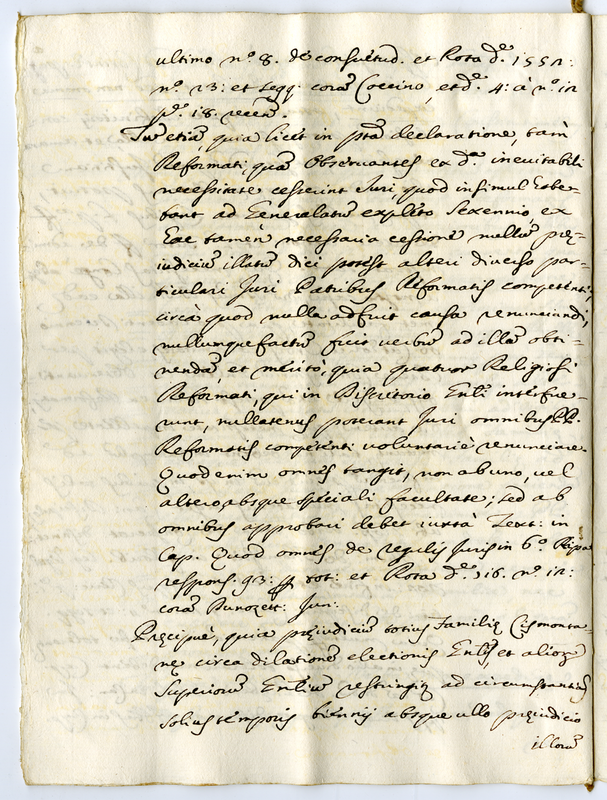 ultimo nº 8. de consuetud. et Rota dᵉ. 1551:
nº 23: et seqq. corã Coccino, et dᵉ. 4: à nº 12
pᵉ. 18. recen.
Tũ etiã, quia licèt in pta declaratione, tàm
Reformati, quã Observantes ex dᵃ. inevitabili
necessitate cesserint Juri, quod insimul habe-
bant ad Generalatũ expleto Sexennio, ex
hac tamèn necessaria cessione nullũ pręj-
iudiciũ illatũ dici potest alteri diverso par-
ticulari Juri Patribus Reformatis competenti,
circà quod nulla adfuit causa renunciandi,
nullumque factũ fuit verbũ ad illã obti-
nendã, et meritò, quia quatuor Religiosi
Reformati, qui in Discretorio Gnli interfue-
runt, nullatenus poterant Juri omnibus PP.
Reformatis competenti voluntariè renunciare.
Quod enim omnes tangit, non ab uno, vel
altero absque speciali facultate; sed ab
omnibus approbari debet iuxtà Text: in
Cap. Quod omnes de regulis Juris in 6º. Ripa
respons: 93: ff tot: et Rota dᵉ. 316. nº. 12:
corã Buratt: Jun:
Pręcipuè, quia pręiudiciũ totius Familię Cismonta-
nę circa dilationẽ electionis Gnlis, et alior̃
Superiorũ Gnliũ restringit̃ ad circumstantiã
solius temporis biennij absque ullo pręiudicio
illorũ